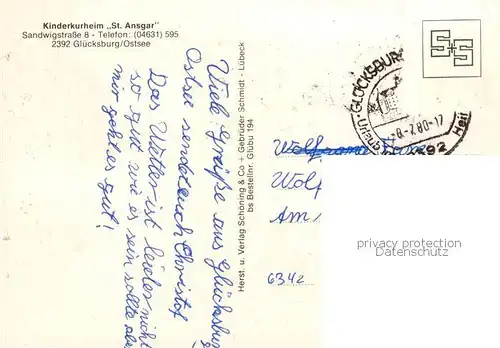 Kinderkurheim „St. Ansgar"
Sandwigstraße 8 - Telefon: (04631) 595
2392 Glücksburg/Ostsee
Viele Grüße aus Glücksburg
Ostsee sendet euch Christof
Das Wetter ist leider nicht
so gut wie es sein sollte aber
mir geht es gut!
Herst. u. Verlag Schöning & Co + Gebrüder Schmidt - Lübeck
bs Bestellnr. Glübu 194
S+S
GLÜCKSBURG
-8.-7.80-17
2392
Heil
Urlaub
Wolfram
Wolf
Am
6342
privacy protection
Datenschutz